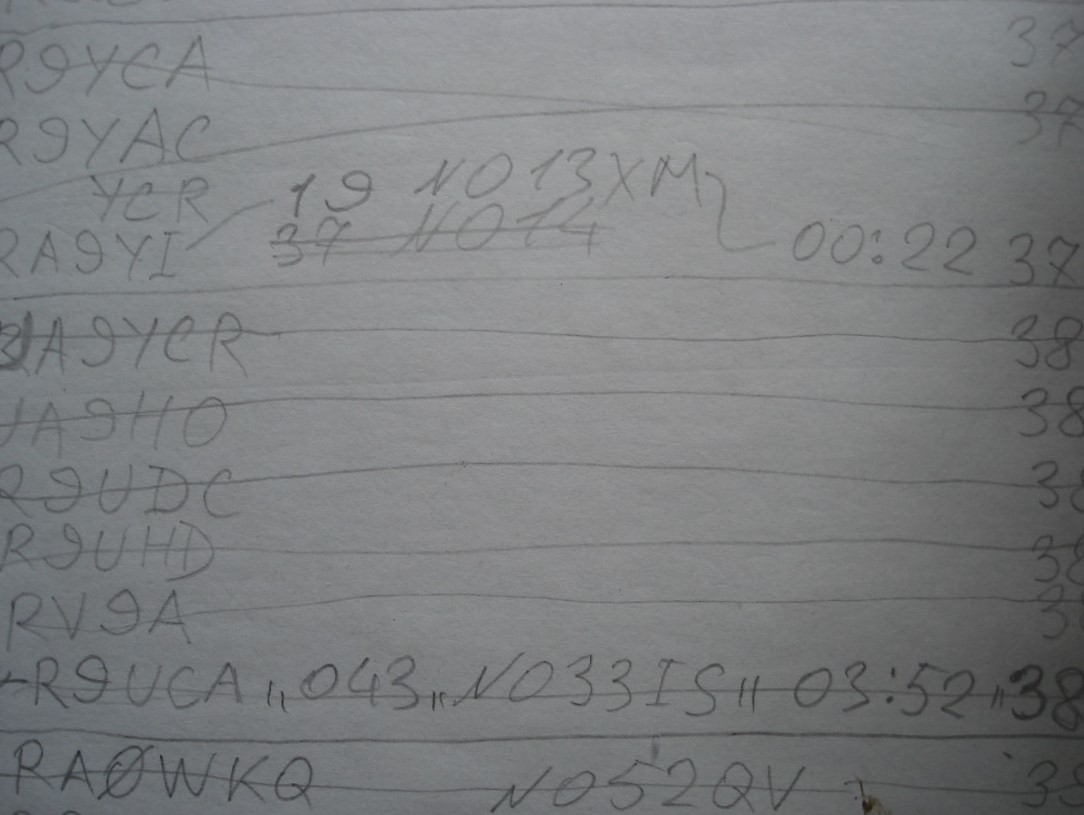 R9YCA 37
R9YAC 37
YCR 19 NO13XM
RA9YI 37 NO14 00:22 37
UA9YCR 38
UA9HO 38
R9UDC 38
R9UHD 38
RV9A 3
R9UCA „ 043 „ NO33IS „ 03:52 „ 38
RAØWKQ NO52QV 39